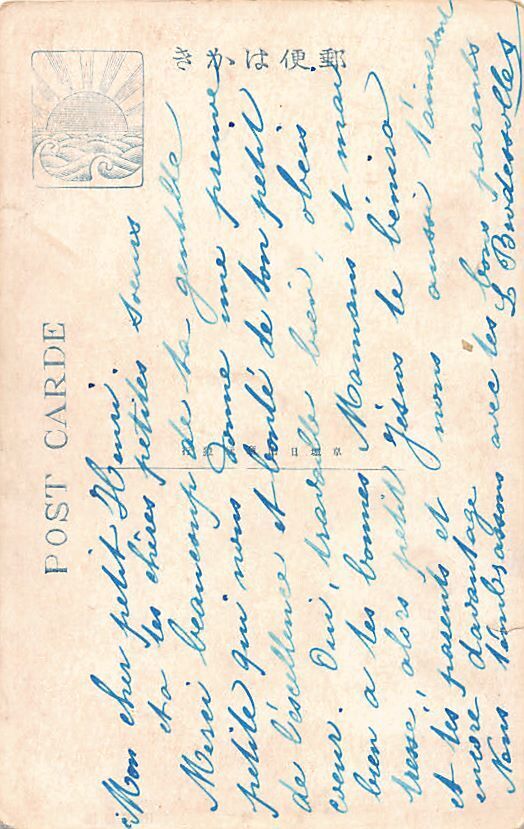 きかは便郵
POST CARDE
Mon cher petit Henri.
et a tes chères petites soeurs
Merci beaucoup de ta gentille
petite qui nous donne une preuve
de l'excellence et bonté de ton petit
coeur. Oui, travaille bien, obeis
bien a tes bonnes Mamans et mai
tresse, alors petit Jésus te bénira
et tes parents et nous aussi t'aimerons
encore davantage
Nous t'embrassons avec tes bons parents